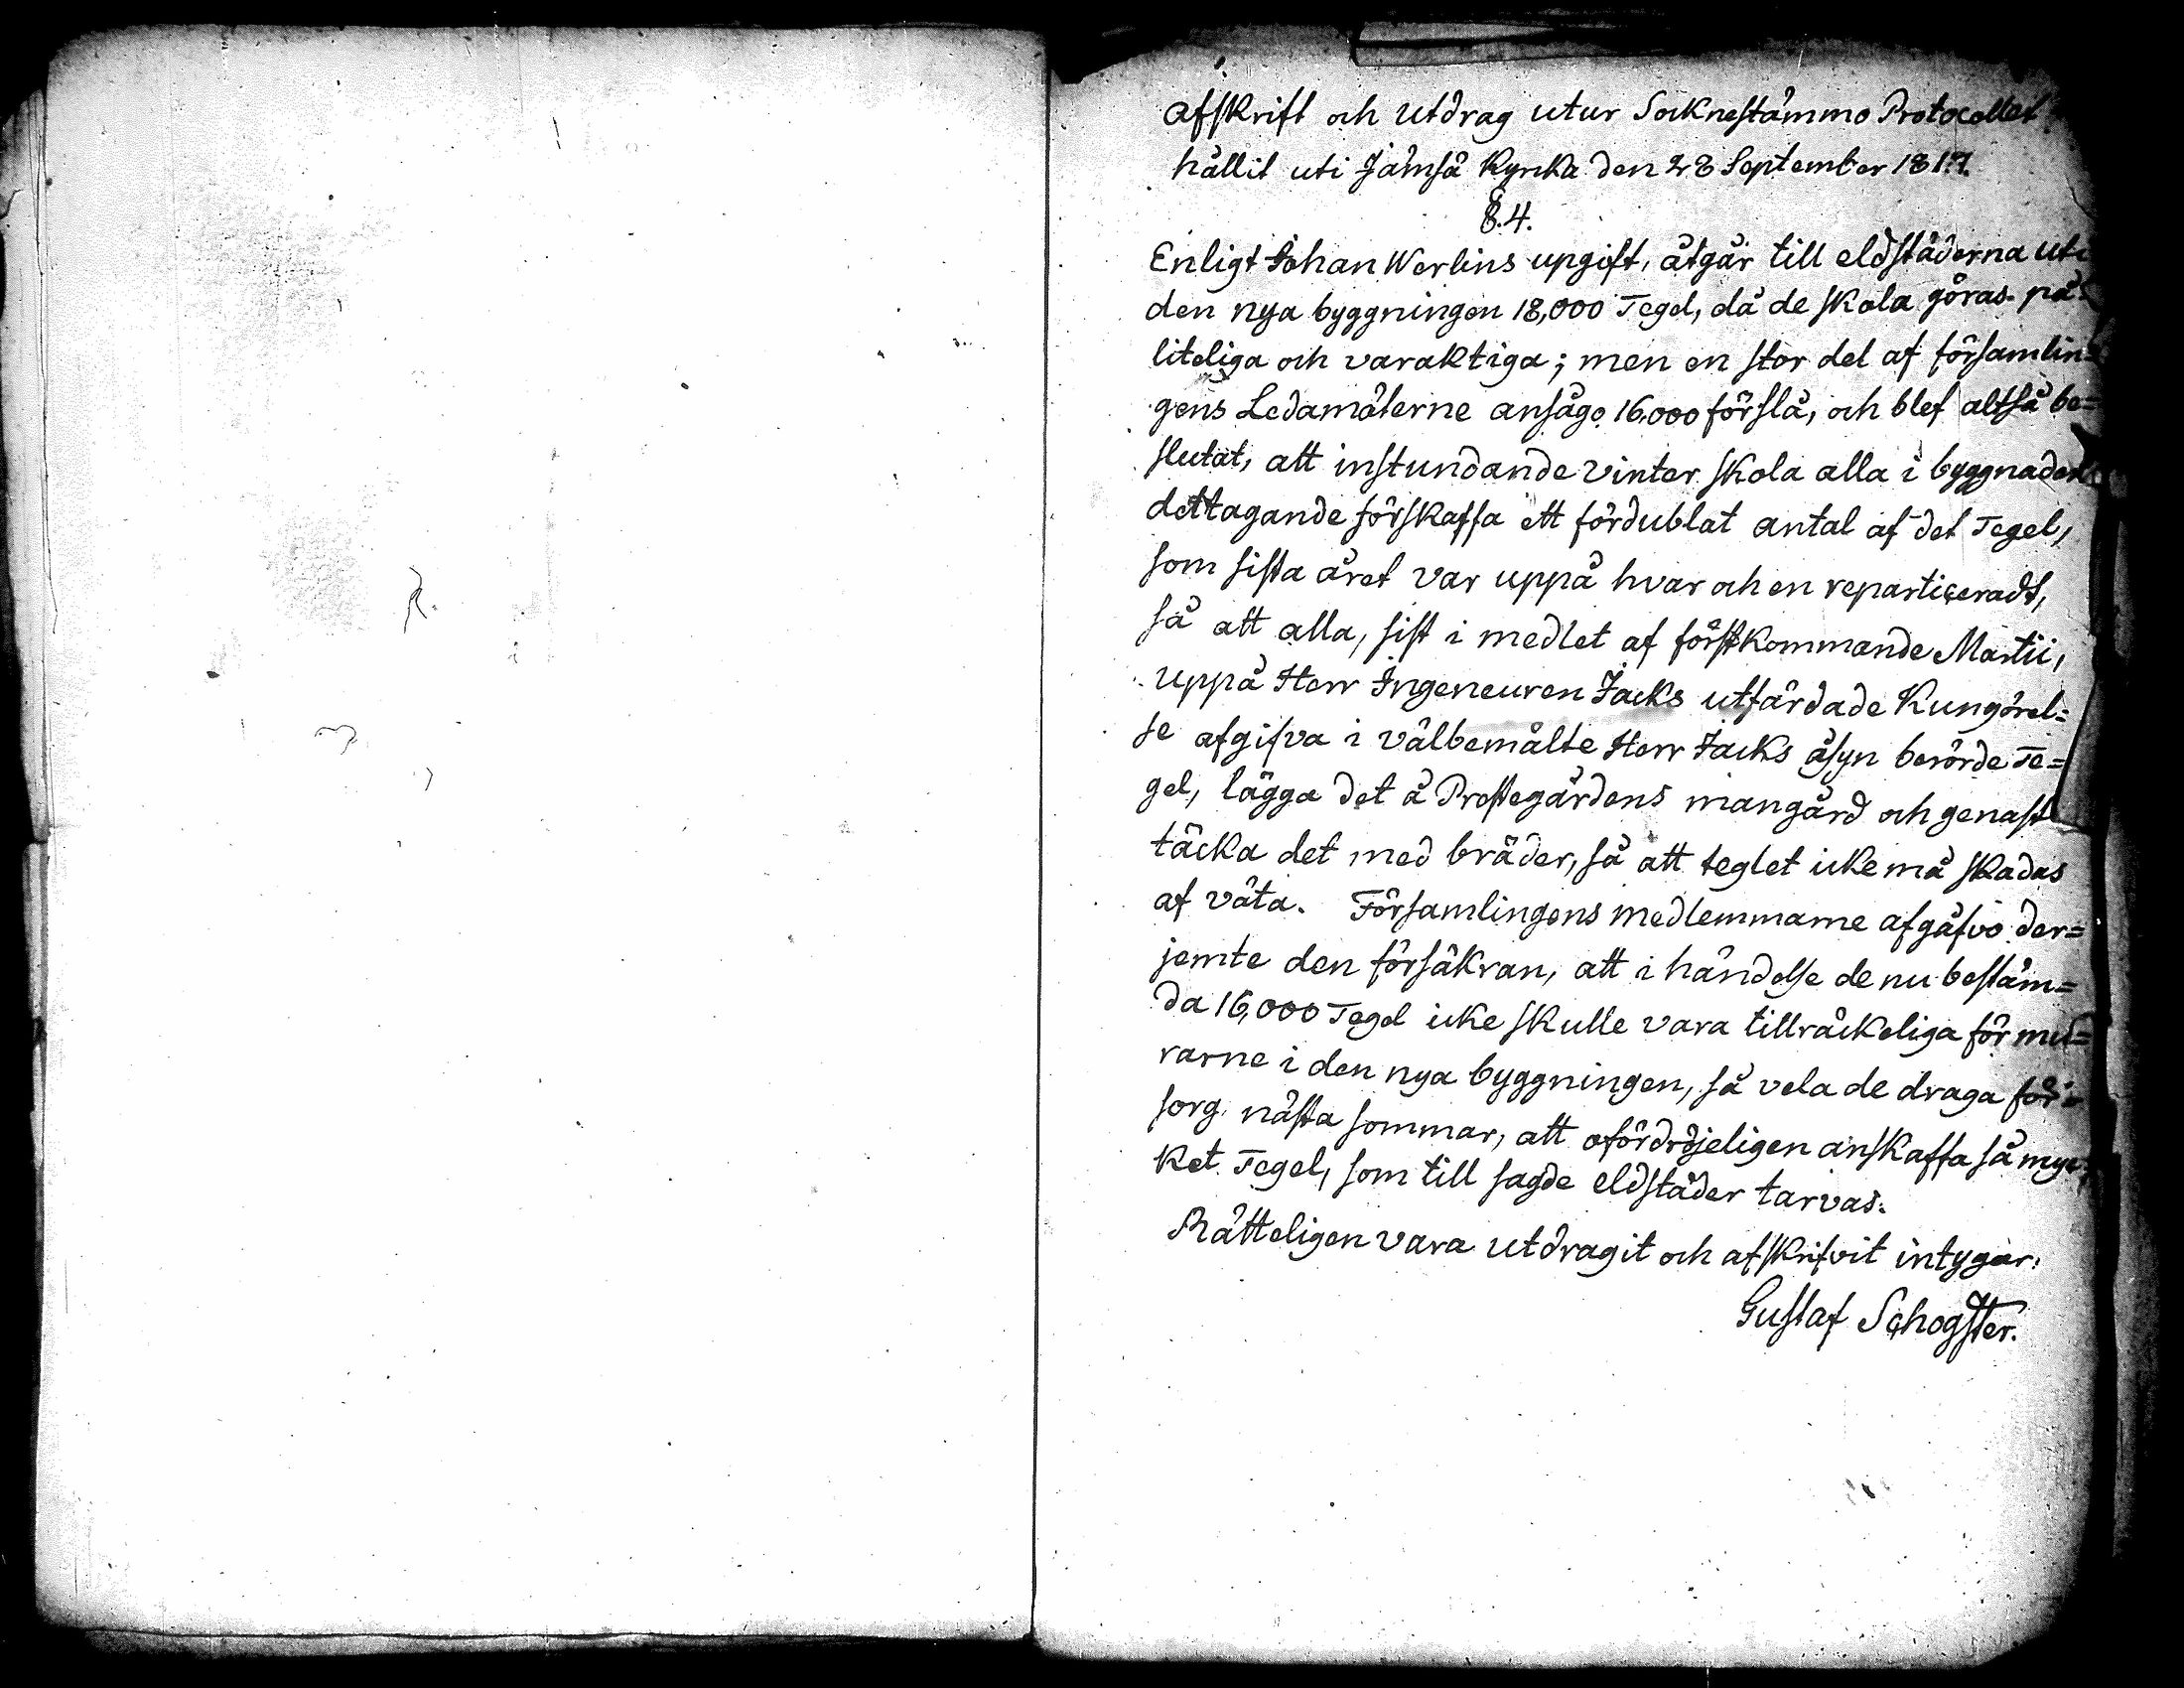 Afskrift och Utdrag utur Socknestämmo Protocollet
hållit uti Jämsä Kyrka den 28 September 1817.
§.4.
Enligt Johan Werlins upgift, åtgår till eldstäderna uti
den nya byggningen 18,000 Tegel, då de skola göras på=
liteliga och varaktiga; men en stor del af församlin=
gens Ledamöterne ansågo 16,000 förslå, och blef altså be=
slutat, att instundande vinter skola alla i byggnaden
deltagande förskaffa ett fördublat antal af det Tegel,
som sista året var uppå hvar och en repartiseradt,
så att alla, sist i medlet af förstkommande Martii,
uppå Herr Ingeneuren Jacks utfärdade Kungörel=
se afgifva i välbemälte Herr Jacks åsyn berörde Te=
gel, lägga det å Prestegårdens mangård och genast
täcka det med bräder, så att teglet icke må skadas
af väta. Församlingens medlemmarne afgåfvo der=
jemte den försäkran, att i händelse de nu bestäm=
da 16,000 Tegel icke skulle vara tillräckeliga för mu=
rarne i den nya byggningen, så vela de draga för=
sorg nästa sommar, att ofördröjeligen anskaffa så myc=
ket Tegel, som till sagde eldstäder tarvas.
Rätteligen vara utdragit och afskrifvit intygar:
Gustaf Schogster.